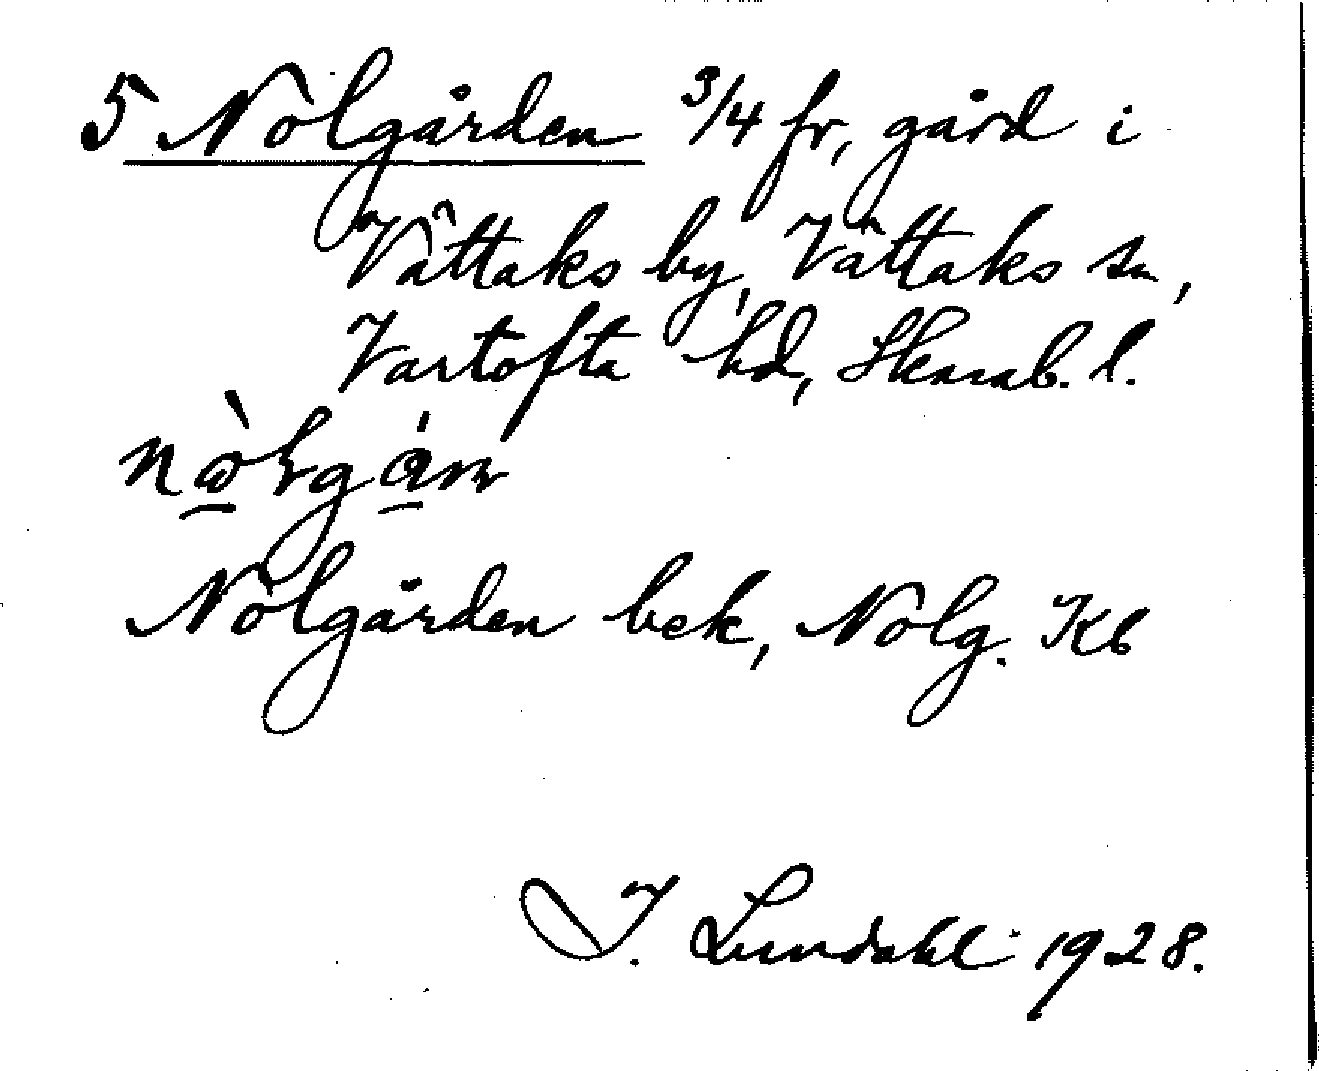 5 Nolgården 3/4 fr, gård i
Våttaks by, Våttaks sn,
Vartofta hd, Skarab. l.
Nolgården bek, Nolg. Kb
I. Lundahl 1928.